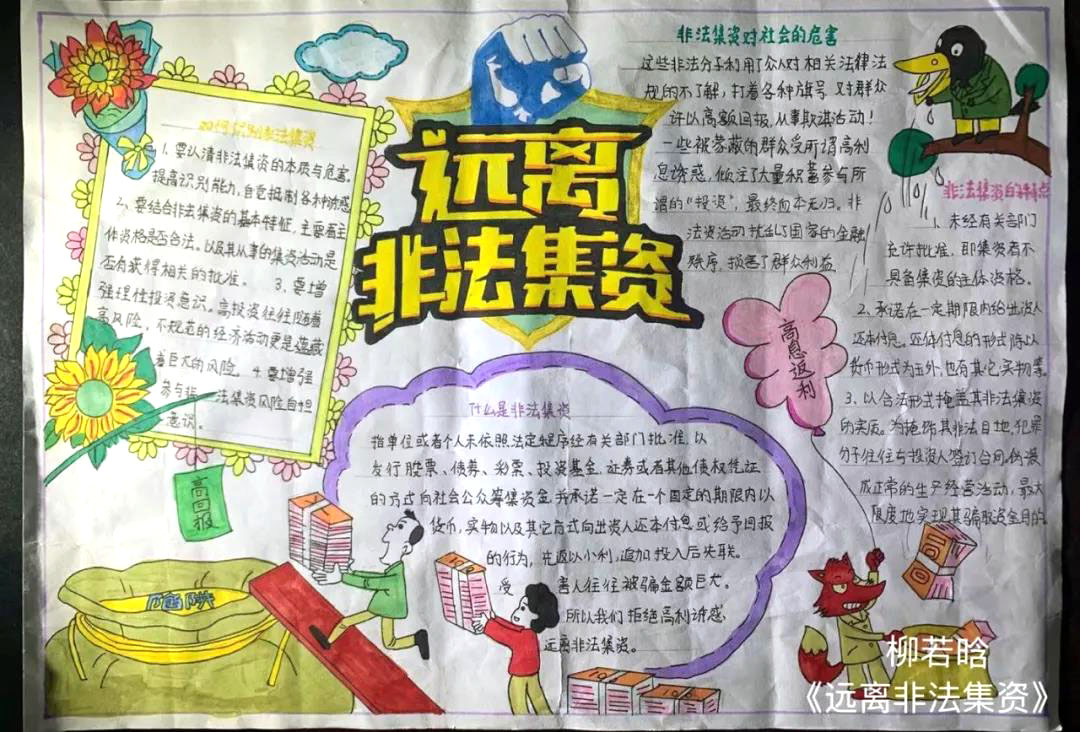 远离
非法集资
如何识别非法集资
1、要认清非法集资的本质与危害,
提高识别能力,自觉抵制各种诱惑
2、要结合非法集资的基本特征,主要看主
体资格是否合法。以及其从事的集资活动是
否有获得相关的批准。 3、要增
强理性投资意识。高投资往往随着
高风险,不规范的经济活动更是蕴藏
着巨大的风险。4、要增强
参与非法集资风险自担
意识。
高回报
陷阱
什么是非法集资
指单位或者个人未依照法定程序经有关部门批准,以
发行股票、债券、彩票、投资基金、证券或者其他债权凭证
的方式向社会公众筹集资金,并承诺一定在一个固定的期限内以
货币,实物以及其它方式向出资人还本付息或给予回报
的行为,先返以小利,追加投入后失联。
受害人往往被骗金额巨大。
所以我们拒绝高利诱惑,
远离非法集资。
非法集资对社会的危害
这些非法分子利用了众人对相关法律法
规的不了解,打着各种旗号,对群众
许以高额回报,从事欺骗活动!
一些被蒙蔽的群众受所谓高利
息诱惑,倾注了大量积蓄参与所
谓的“投资”,最终血本无归。非
法资活动扰乱了国家的金融
秩序,损害了群众利益
高息返利
非法集资的特点
1、未经有关部门
允许批准,即集资者不
具备集资的主体资格。
2、承诺在一定期限内给出资人
还本付息。还本付息的形式除以
货币形式为主外,也有其它实物等
3、以合法形式掩盖其非法集资
的实质。为掩饰其非法目地,犯罪
分子往往与投资人签订合同,伪装
成正常的生产经营活动,最大
限度地实现其骗取资金目的
柳若晗
《远离非法集资》